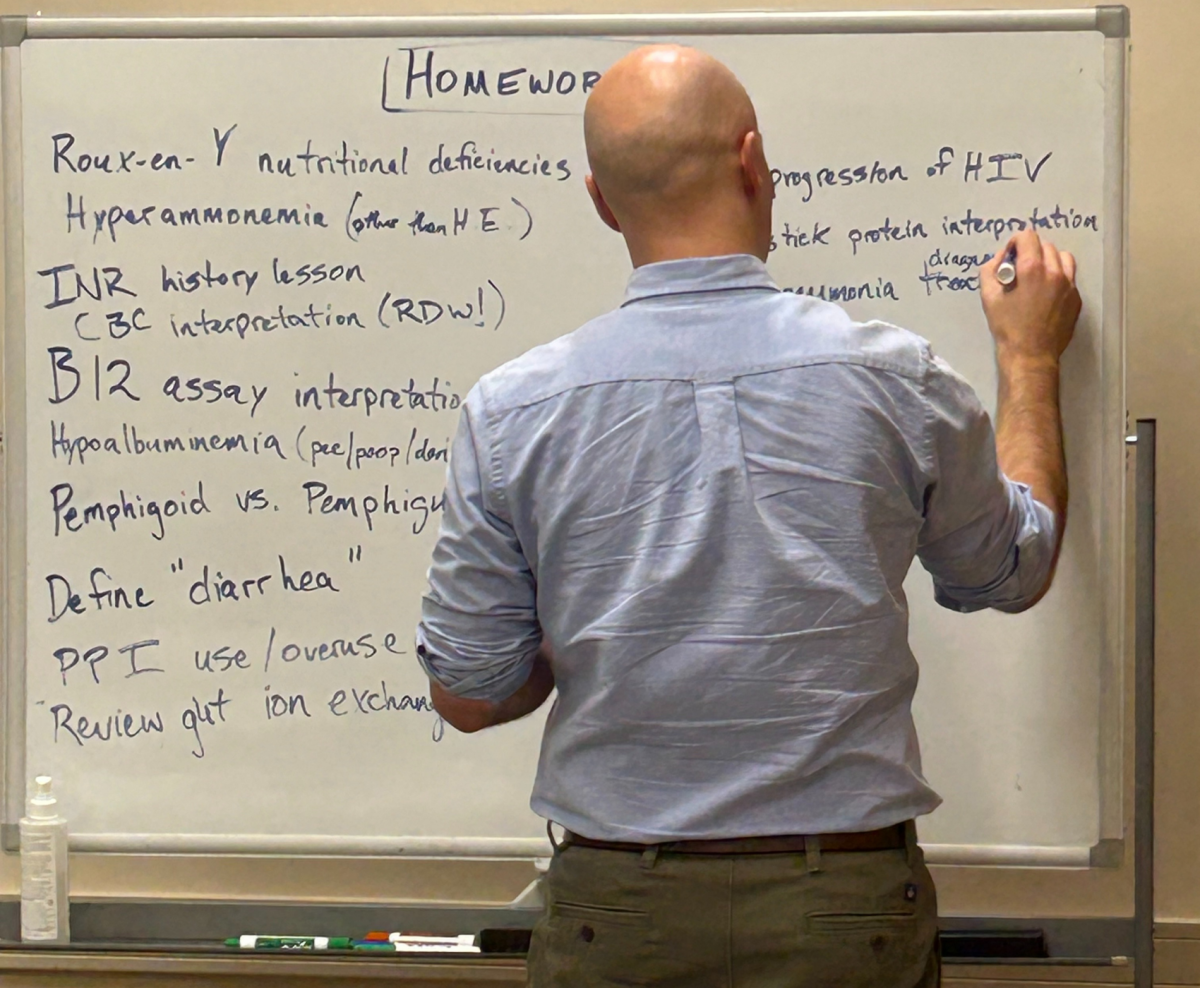 HOMEWOR
Roux-en-Y nutritional deficiencies
Hyperammonemia (other than HE.)
INR history lesson
CBC interpretation (RDW!)
B12 assay interpretatio
Hypoalbuminemia (pee/poop/don
Pemphigoid vs. Pemphigu
Define "diarrhea"
PPI use/overuse
Review gut ion exchang
progression of HIV
stick protein interpretation
diagn
umonia treat